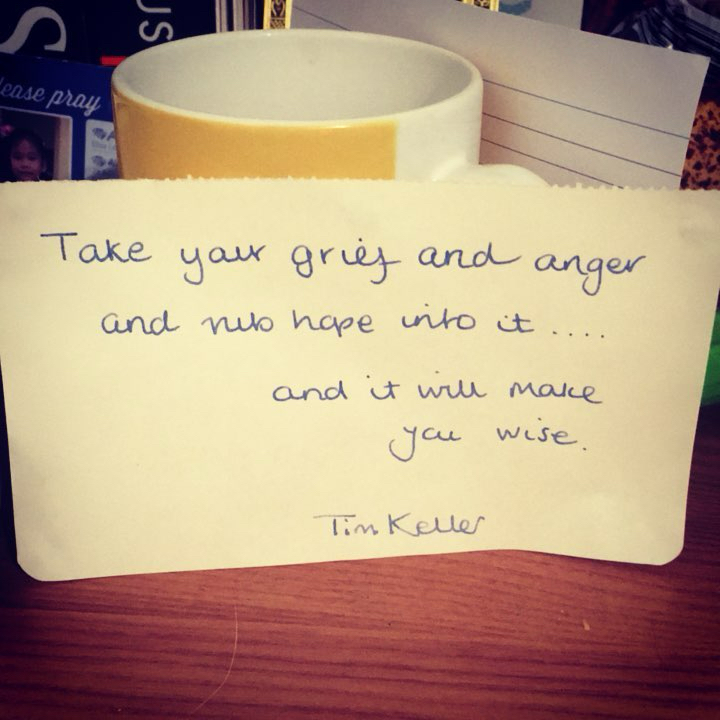 S
US
lease pray
Take your grief and anger
and rub hope into it ....
and it will make
you wise.
Tim Keller